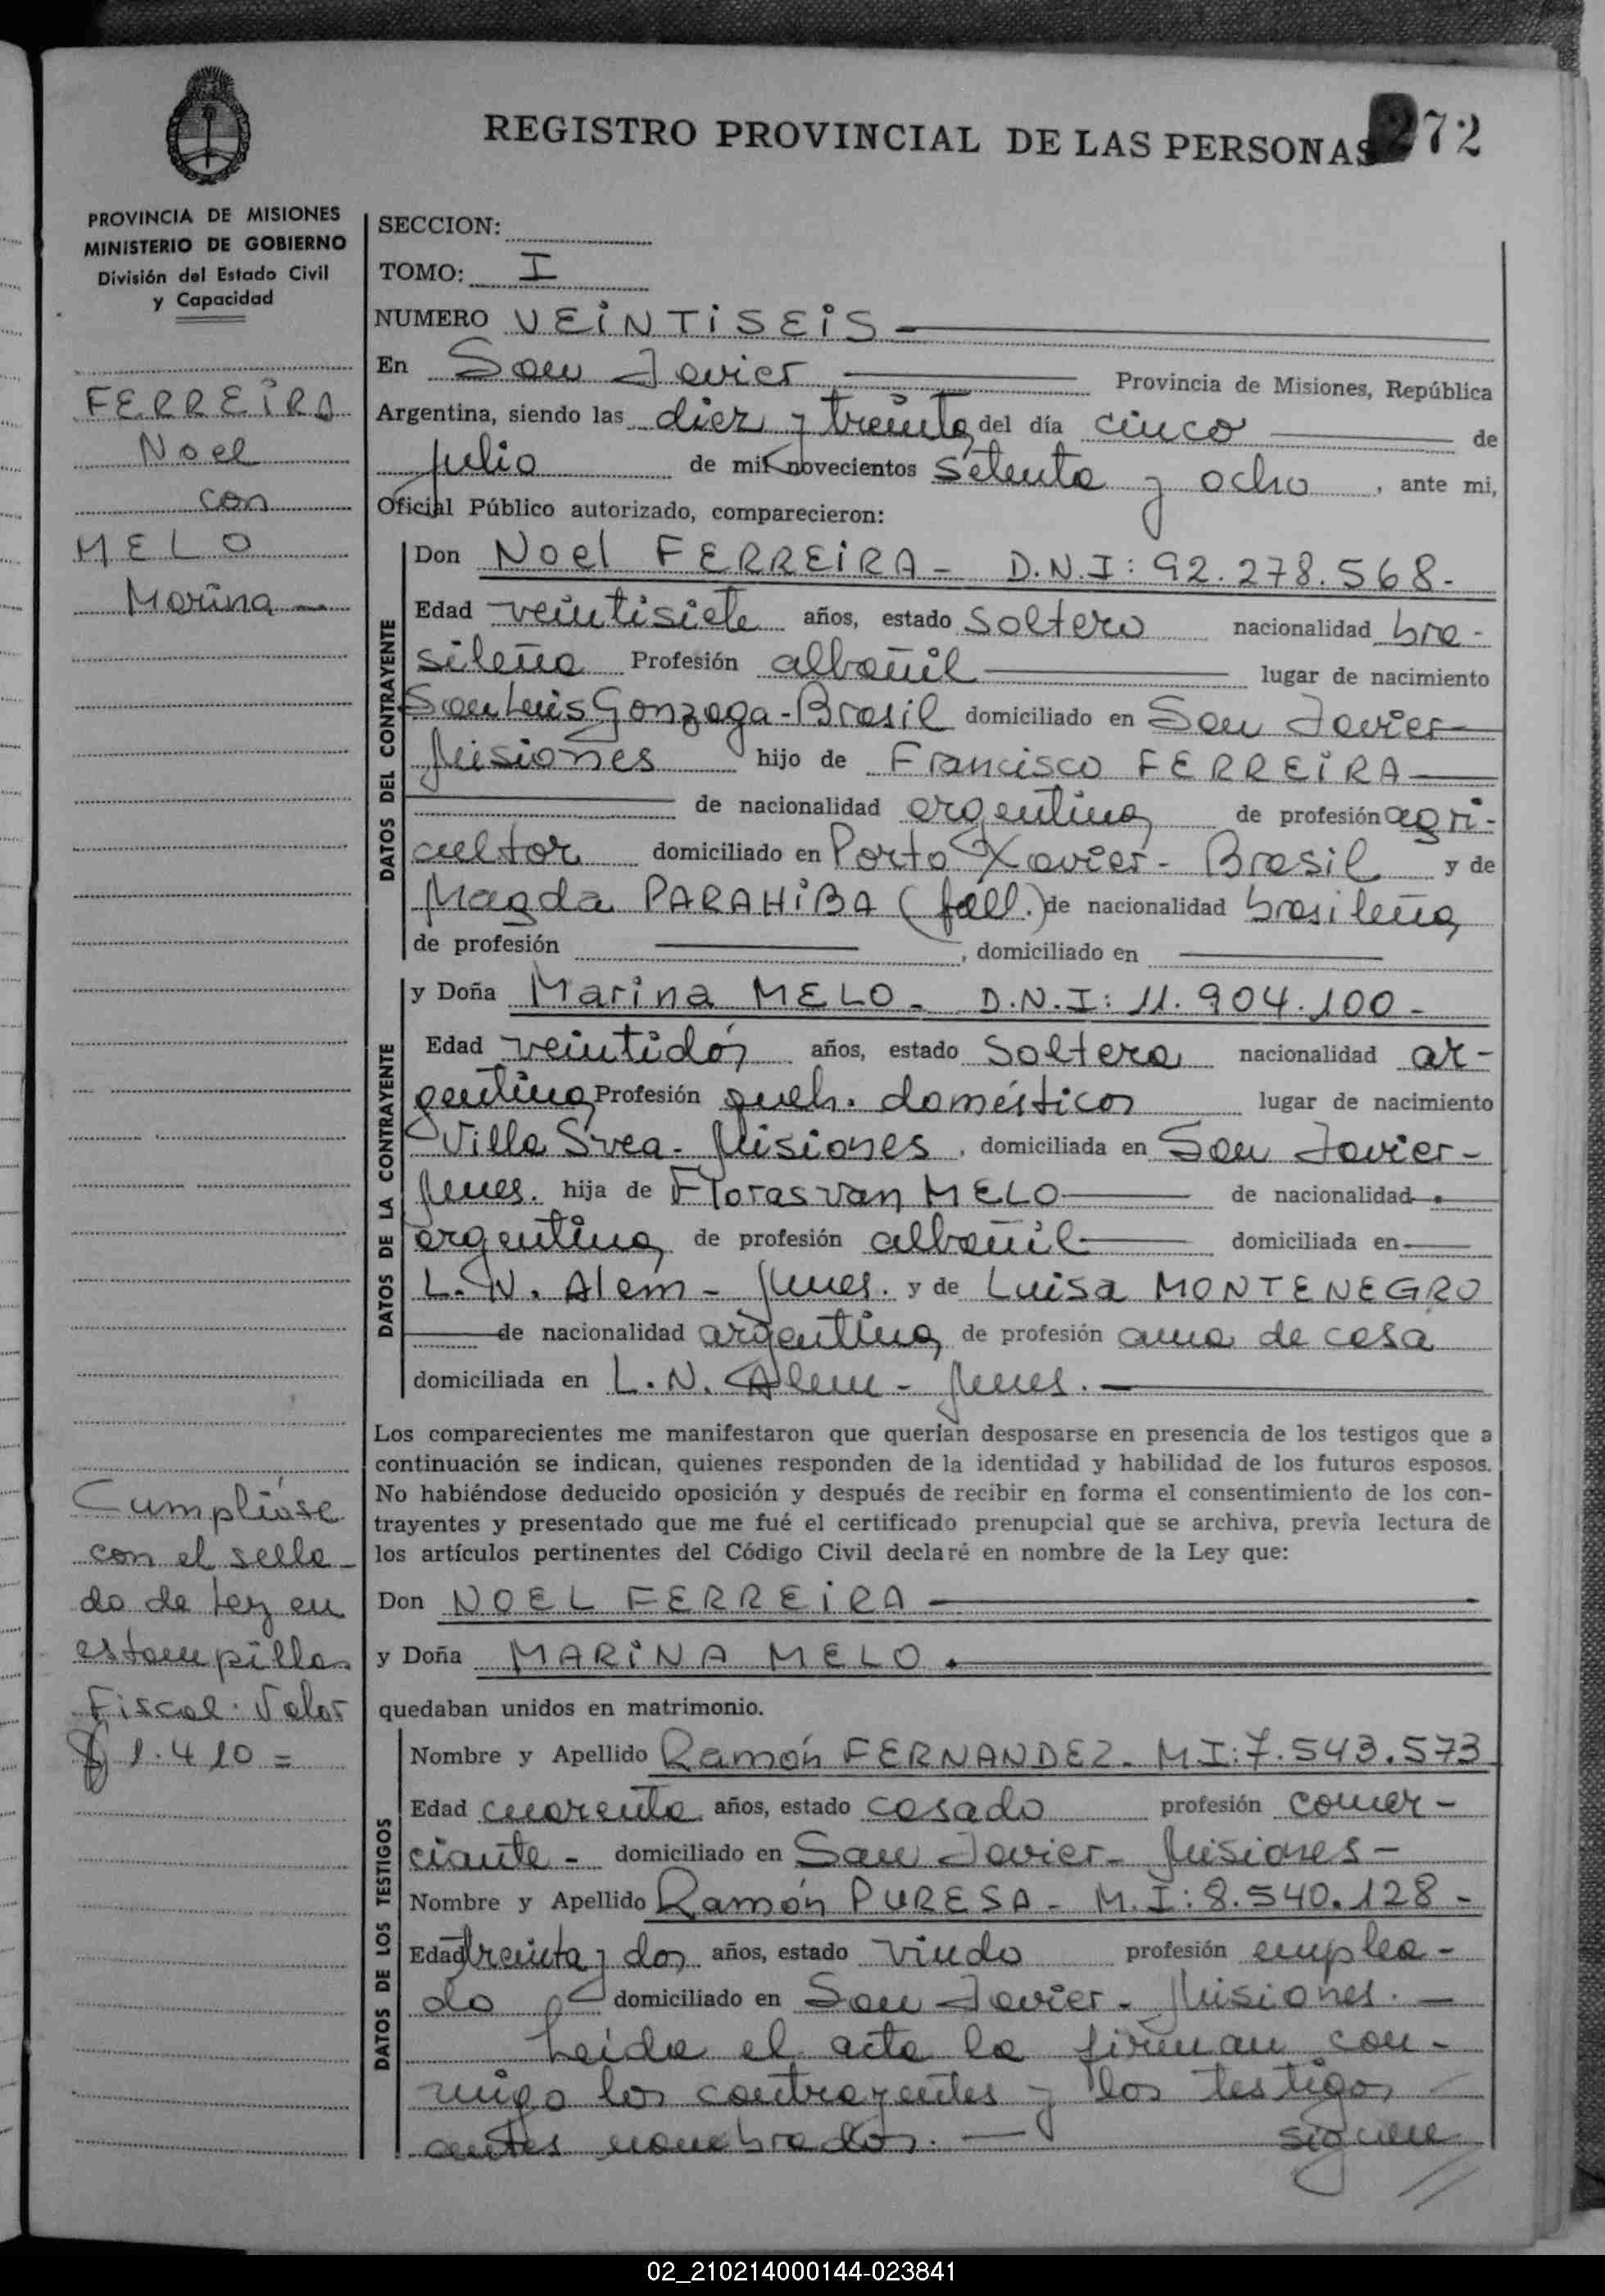 REGISTRO PROVINCIAL DE LAS PERSONAS 272
PROVINCIA DE MISIONES
MINISTERIO DE GOBIERNO
División del Estado Civil
y Capacidad
FERREIRA
Noel
con
MELO
Marina
Cumplióse
con el sella-
do de Ley en
estampillas
Fiscal. Valor
$ 1.410 =
SECCION:
TOMO: I
NUMERO VEINTISEIS
En San Javier Provincia de Misiones, República
Argentina, siendo las diez y treinta del día cinco de
julio de mil novecientos setenta y ocho, ante mi,
Oficial Público autorizado, comparecieron:
DATOS DEL CONTRAYENTE
Don Noel FERREIRA - D.N.I: 92.278.568.
Edad veintisiete años, estado soltero nacionalidad bra-
sileña Profesión albañil lugar de nacimiento
San Luis Gonzaga - Brasil domiciliado en San Javier
Misiones hijo de Francisco FERREIRA
de nacionalidad argentina de profesión agri-
cultor domiciliado en Porto Xavier - Brasil y de
Magda PARAHIBA (fall.) de nacionalidad brasileña
de profesión , domiciliado en
DATOS DE LA CONTRAYENTE
y Doña Marina MELO - D.N.I: 11.904.100 -
Edad veintidós años, estado soltera nacionalidad ar-
gentina Profesión queh. domésticos lugar de nacimiento
Villa Svea - Misiones, domiciliada en San Javier -
Mnes. hija de Florasvan MELO de nacionalidad
argentina de profesión albañil domiciliada en
L. N. Alem - Mnes. y de Luisa MONTENEGRO
de nacionalidad argentina de profesión ama de casa
domiciliada en L. N. Alem - Mnes.
Los comparecientes me manifestaron que querían desposarse en presencia de los testigos que a
continuación se indican, quienes responden de la identidad y habilidad de los futuros esposos.
No habiéndose deducido oposición y después de recibir en forma el consentimiento de los con-
trayentes y presentado que me fué el certificado prenupcial que se archiva, previa lectura de
los artículos pertinentes del Código Civil declaré en nombre de la Ley que:
Don NOEL FERREIRA
y Doña MARINA MELO.
quedaban unidos en matrimonio.
DATOS DE LOS TESTIGOS
Nombre y Apellido Ramón FERNANDEZ - MI: 7.543.573
Edad cuarenta años, estado casado profesión comer-
ciante - domiciliado en San Javier - Misiones -
Nombre y Apellido Ramón PURESA - M.I: 8.540.128 -
Edad treinta y dos años, estado viudo profesión emplea-
do domiciliado en San Javier - Misiones. -
Leída el acta la firman con-
migo los contrayentes y los testigos
antes nombrados. - sigue
02_210214000144-023841